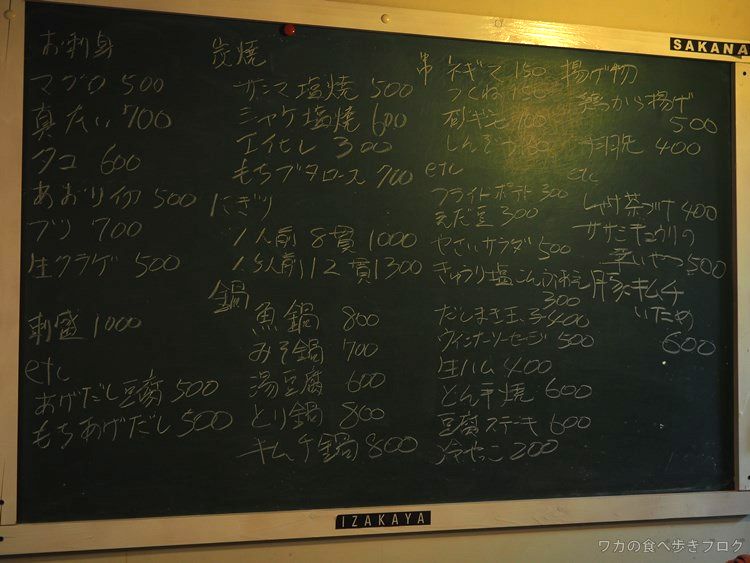 SAKANA
お刺身
マグロ 500
真だい 700
タコ 600
あおりイカ 500
ブリ 700
生クラゲ 500
刺盛 1000
etc
あげだし豆腐 500
もちあげだし 500
炭焼
サンマ塩焼 500
シャケ塩焼 600
エイヒレ 300
もちブタロース 700
にぎり
1人前 8貫 1000
1.5人前 12貫 1300
鍋
魚鍋 800
みそ鍋 700
湯豆腐 600
とり鍋 800
キムチ鍋 800
串 ネギマ 150
つくね 150
砂ギモ 100
しんぞう
etc
フライドポテト 300
えだ豆 300
やさいサラダ 500
きゅうり塩こんぶ和え
300
だしまき玉子 400
ウィンナーソーセージ 500
生ハム 400
とん平焼 600
豆腐ステーキ 600
冷やっこ 200
揚げ物
鶏から揚げ
500
手羽先 400
etc
しゃけ茶づけ 400
ササミキュウリの
辛いやつ 500
豚キムチ
いため
600
IZAKAYA
ワカの食べ歩きブログ